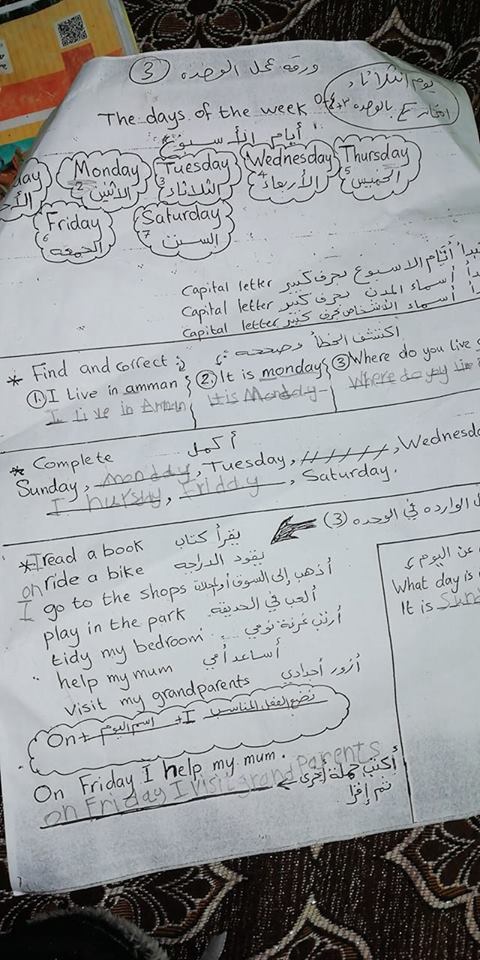 ورقة عمل الوحده (3)
يوم الثلاثاء
امتحان بالوحده
The days of the week
أيام الأسبوع
Monday Tuesday Wednesday Thursday
2 الاثنين 3 الثلاثاء 4 الأربعاء 5 الخميس
Friday Saturday
6 الجمعه 7 السبت
أيام الاسبوع بحرف كبير Capital letter
أسماء المدن بحرف كبير Capital letter
أسماء الأشخاص بحرف كبير Capital letter
* Find and correct اكتشف الخطأ وصححه
① I Live in amman ② It is monday ③ Where do you live
I Live in Amman It is Monday Where do you
* Complete أكمل
Sunday, monday, Tuesday, ///////, Wednesda
Thursday, Friday, Saturday.
الوارده في الوحده (3)
* I read a book يقرأ كتاب
on ride a bike يقود الدراجه
I go to the shops أذهب إلى السوق أو
play in the park ألعب في الحديقه
tidy my bedroom أرتب غرفة نومي
help my mum أساعد أمي
visit my grandparents أزور أجدادي
عن اليوم
What day is
It is Sund
On + اسم اليوم + I نضع الفعل المناسب
On Friday I help my mum.
on Friday I visit grand Parents
أكتب جملة أخرى
ثم إقرأ